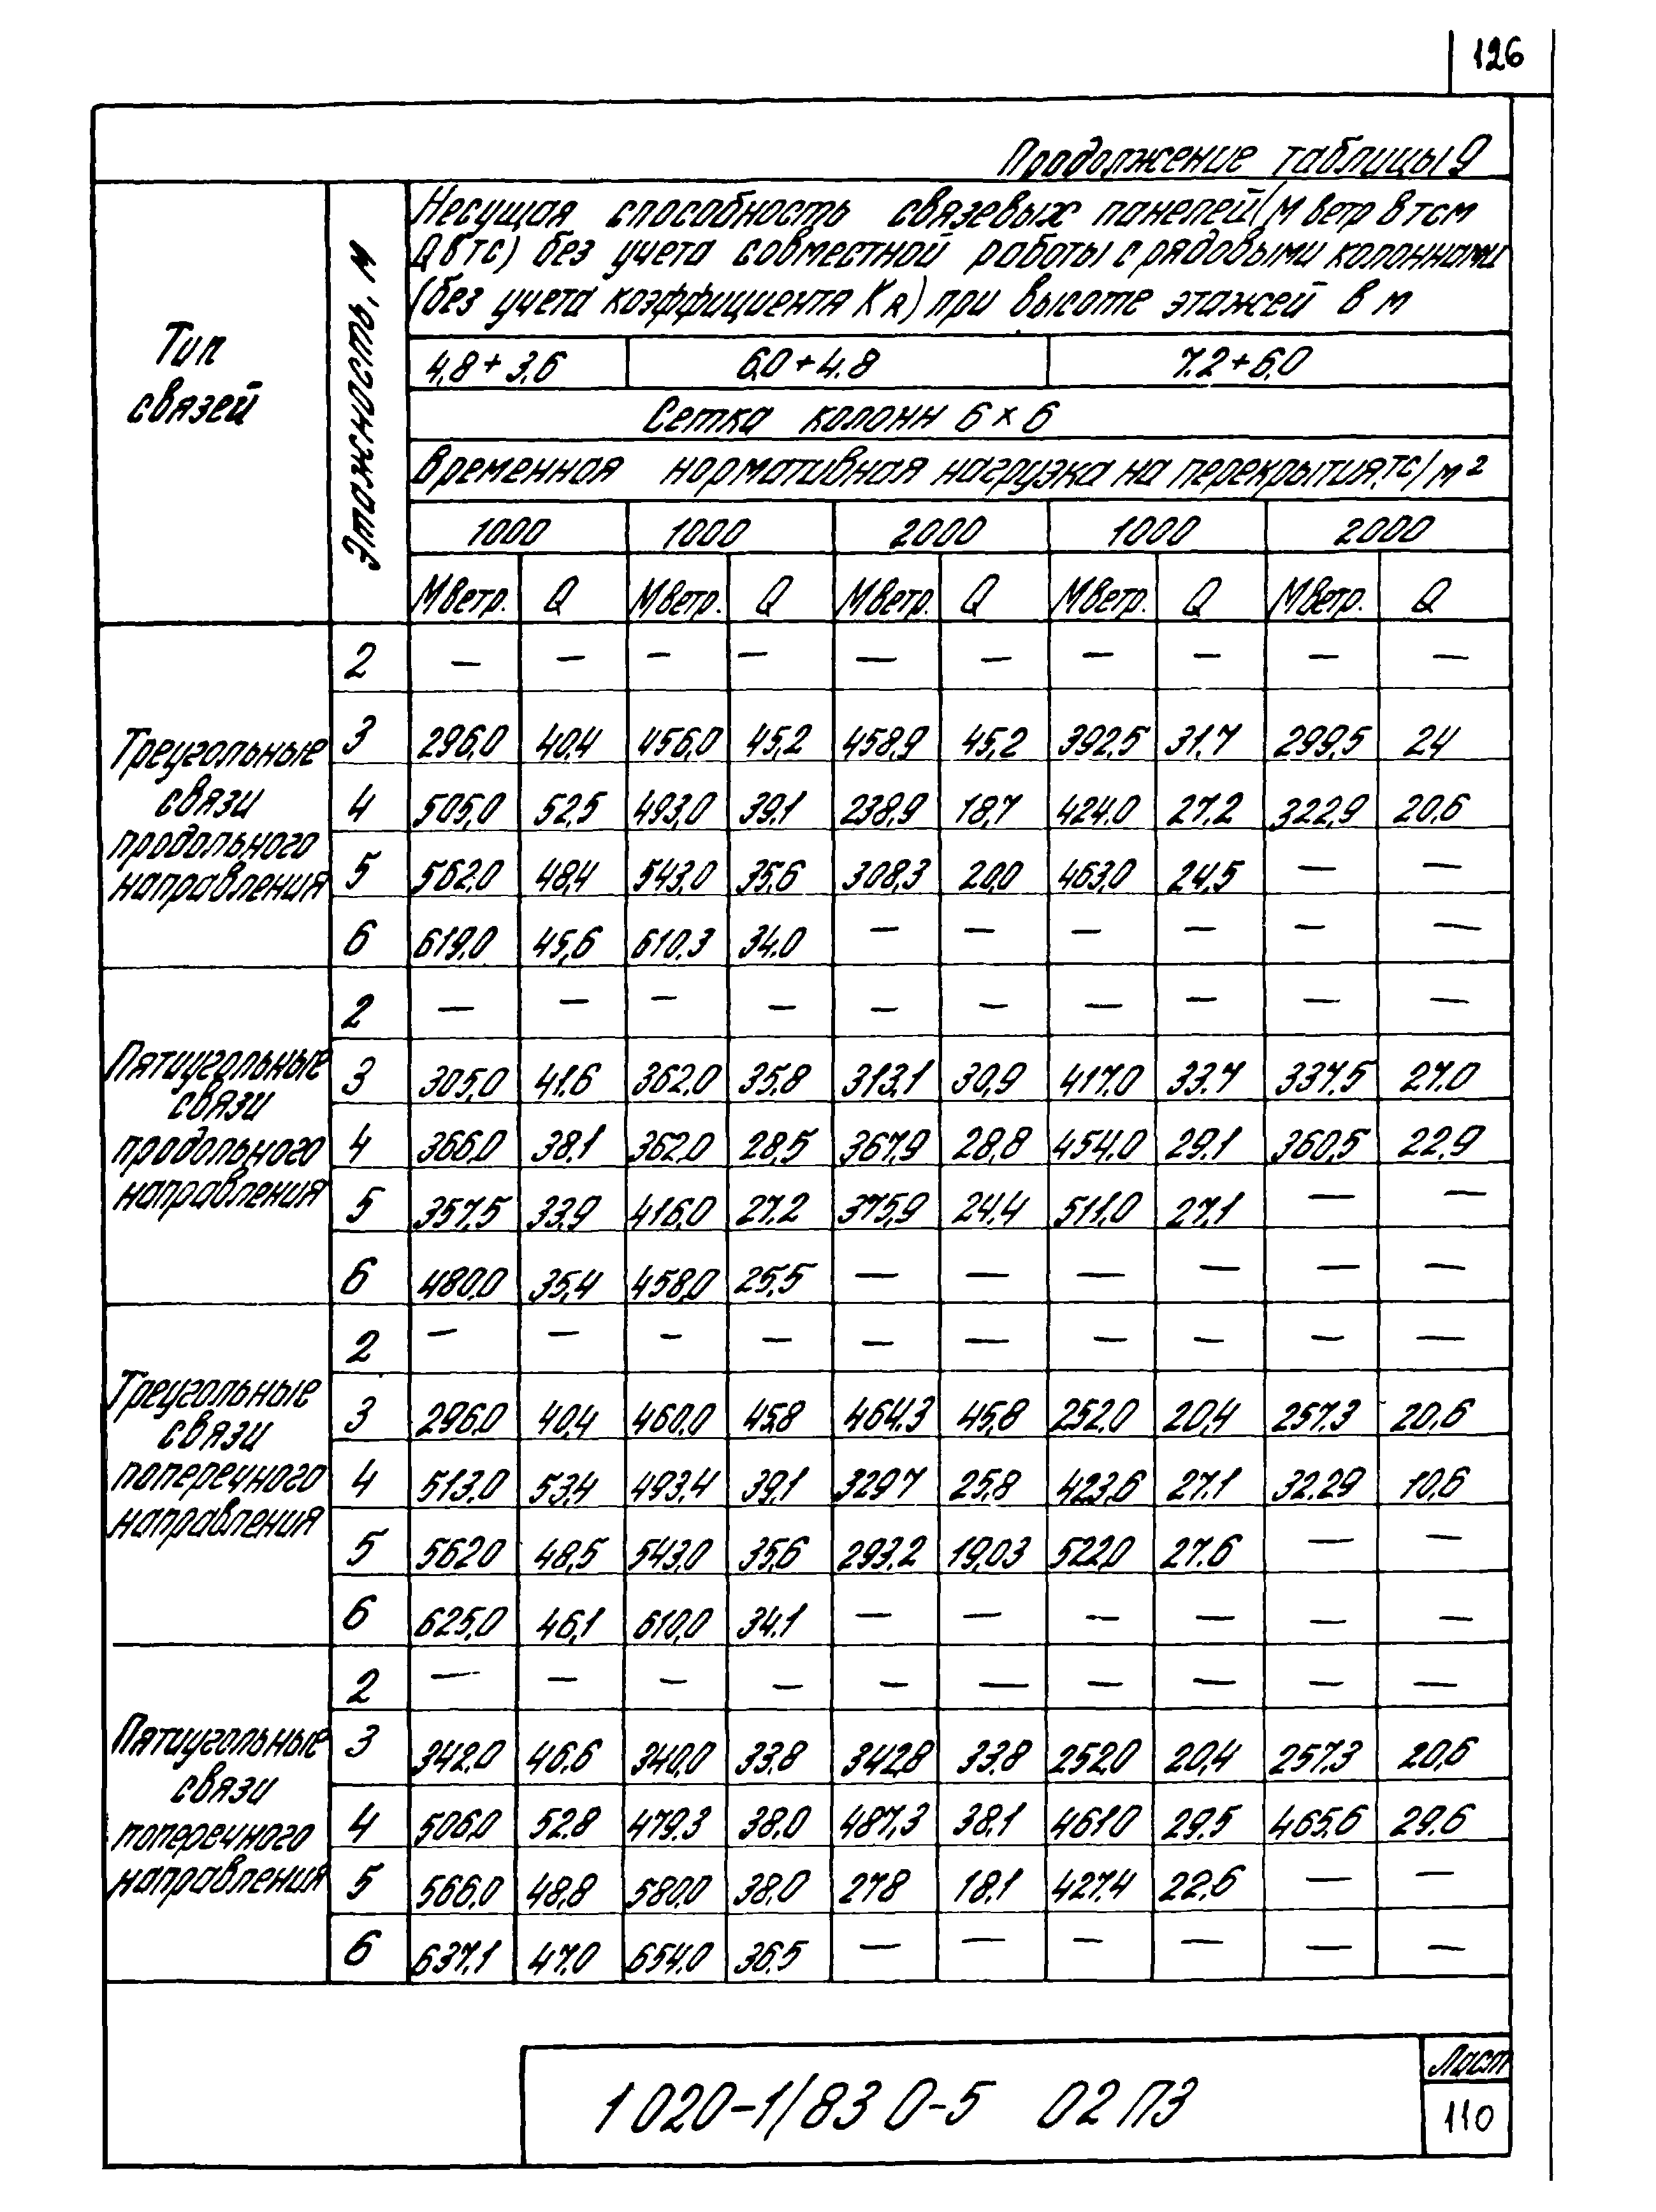 126
Продолжение таблицы 9
Тип связей
Этажность, м
Несущая способность связевых панелей (М ветр в тсм
Q в тс) без учета совместной работы с рядовыми колоннами
(без учета коэффициента К R) при высоте этажей в м
4,8+3,6 6,0+4.8 7.2+6,0
Сетка колонн 6×6
Временная нормативная нагрузка на перекрытия, тс/м²
1000 1000 2000 1000 2000
М ветр. Q М ветр. Q М ветр. Q М ветр. Q М ветр. Q
Треугольные связи продольного направления
2 — — — — — — — — — —
3 296,0 40,4 456,0 45,2 458,9 45,2 392,5 31.7 299,5 24
4 505,0 52,5 493,0 39,1 238,9 18,7 424,0 27,2 322,9 20,6
5 562,0 48,4 543,0 35,6 308,3 20,0 463,0 24,5 — —
6 619,0 45,6 610,3 34,0 — — — — — —
Пятиугольные связи продольного направления
2 — — — — — — — — — —
3 305,0 41.6 362,0 35,8 313,1 30,9 417,0 33.7 337,5 27.0
4 366,0 38,1 362,0 28,5 367,9 28,8 454,0 29.1 360,5 22,9
5 357,5 33,9 416,0 27.2 375,9 24.4 511,0 27,1 — —
6 480,0 35,4 458,0 25,5 — — — — — —
Треугольные связи поперечного направления
2 — — — — — — — — — —
3 296,0 40,4 460,0 45,8 464,3 45,8 252,0 20,4 257,3 20,6
4 513,0 53,4 493,4 39,1 329 7 25,8 423,6 27.1 32.29 10,6
5 5620 48,5 543,0 35,6 293,2 19,03 522,0 27.6 — —
6 625,0 46,1 610,0 34.1 — — — — — —
Пятиугольные связи поперечного направления
2 — — — — — — — — — —
3 342,0 46.6 340,0 33.8 342,8 33.8 252,0 20,4 257,3 20,6
4 506,0 52.8 479,3 38.0 487,3 38,1 461,0 29.5 465,6 29.6
5 566,0 48,8 580,0 38,0 278 18.1 427,4 22.6 — —
6 637,1 47,0 654,0 36,5 — — — — — —
1 020-1/83 0-5 02 ПЗ
Лист
110